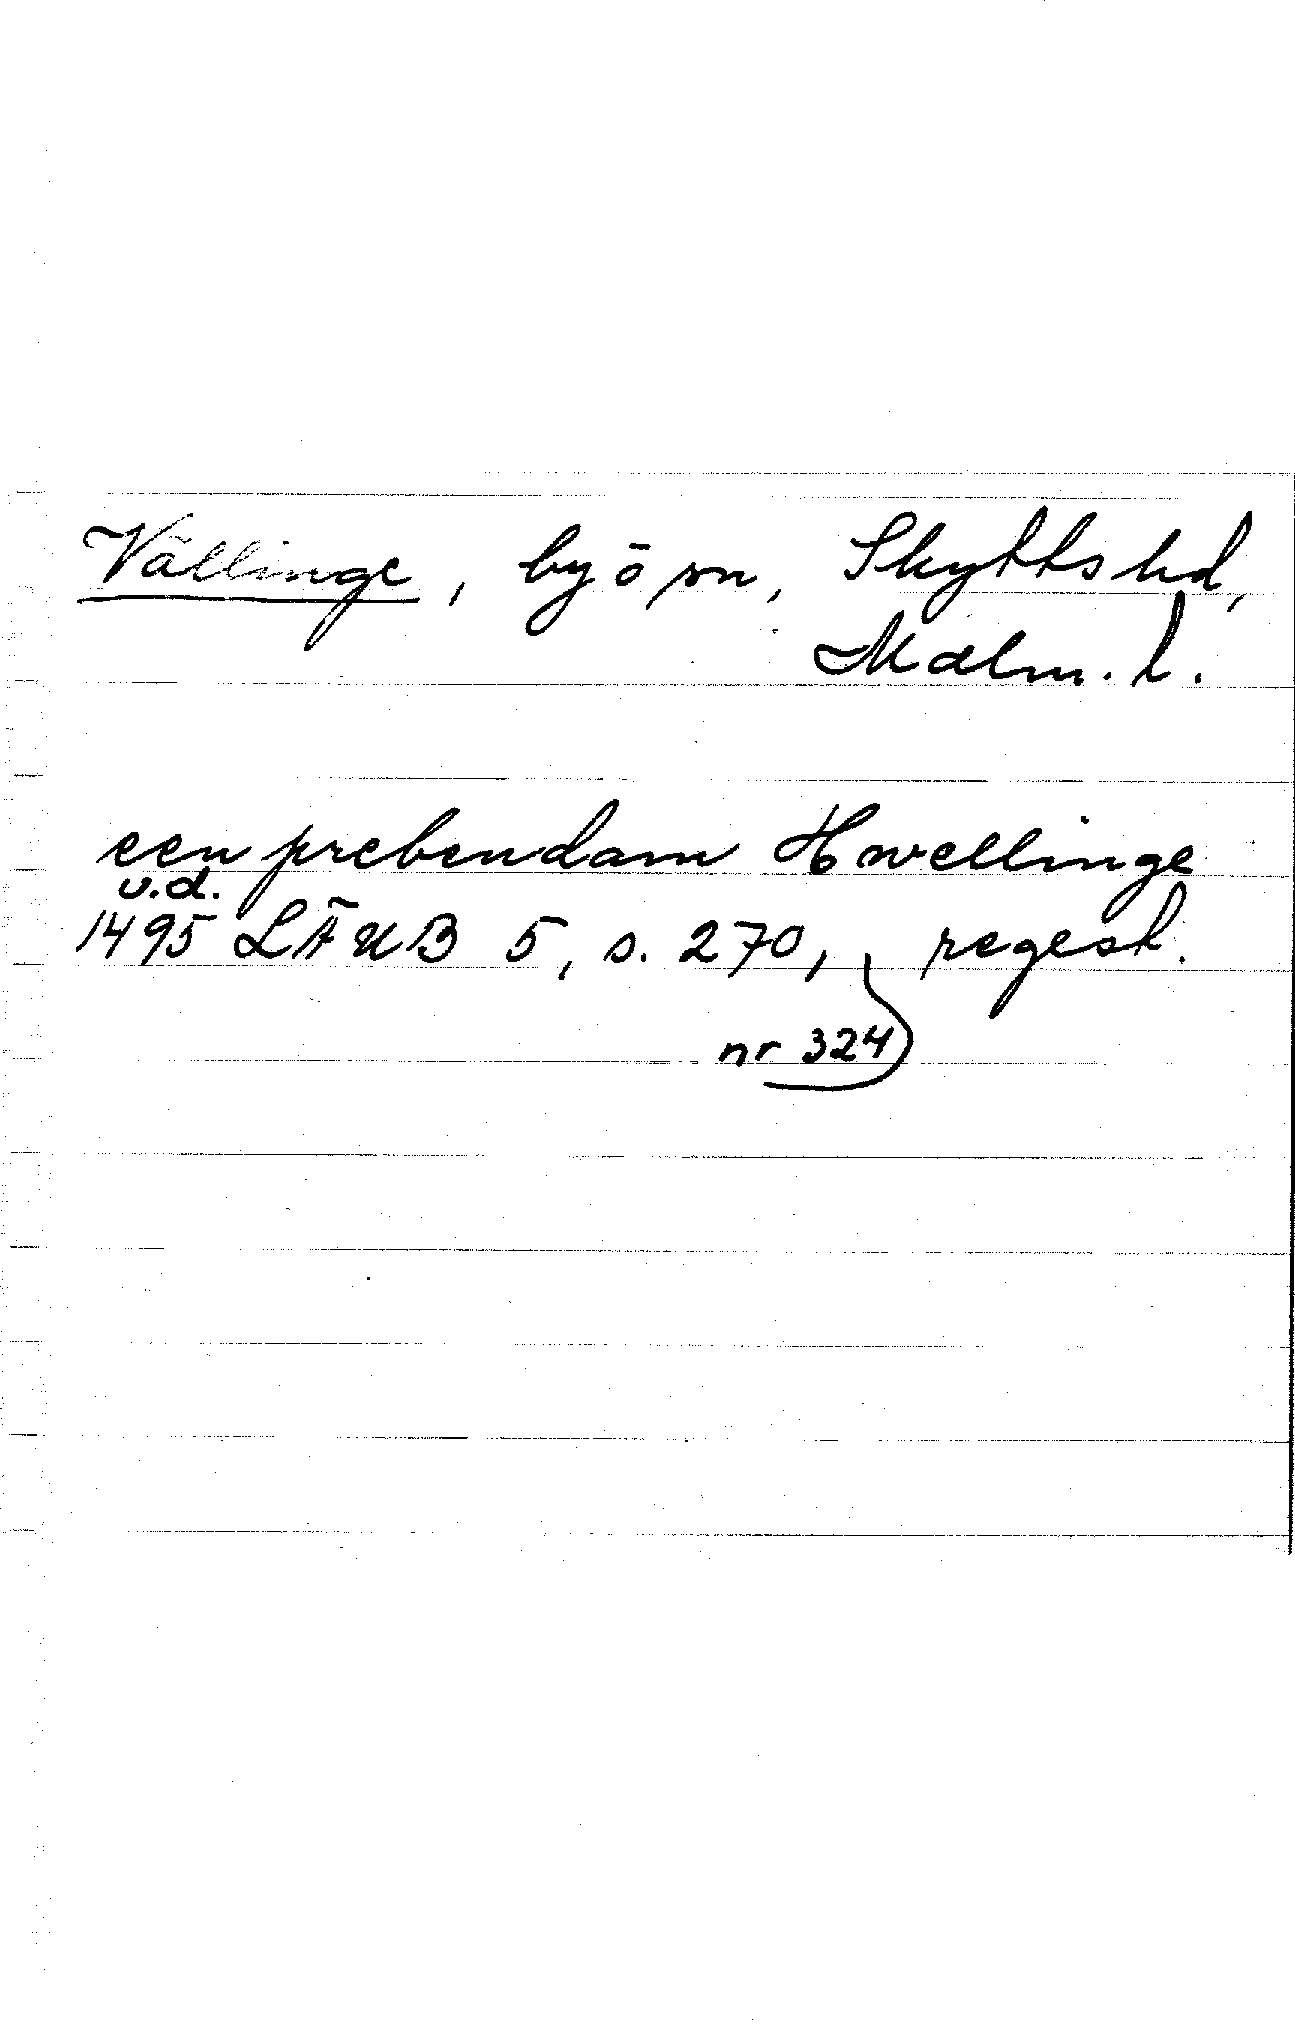 Vällinge, by ö sn, Skytts hd,
Malm. l.
een prebendam Hwellinge
u.d.
1495 LÄUB 5, s. 270, regest.
nr 324